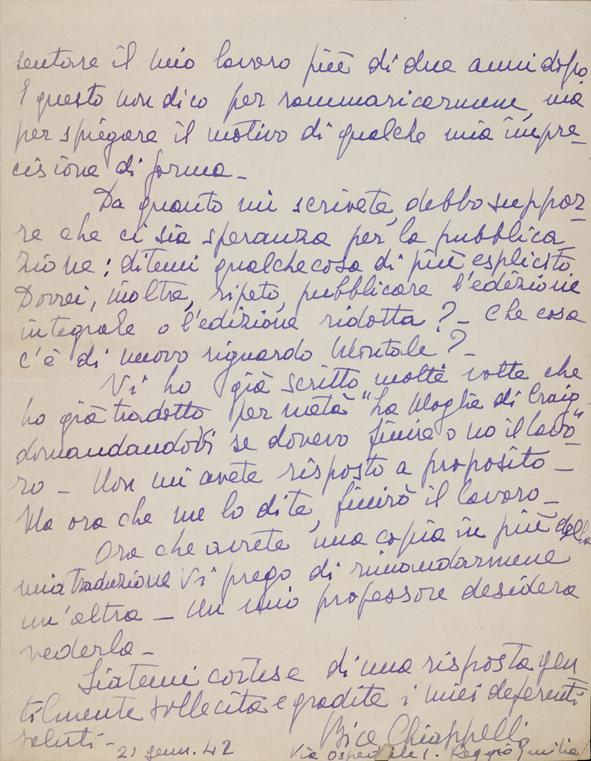 sentare il mio lavoro più di due anni dopo.
E questo non dico per rammaricarmene, ma
per spiegare il motivo di qualche mia impre-
cisione di forma -
Da quanto mi scrivete, debbo suppor-
re che ci sia speranza per la pubblica-
zione; ditemi qualchecosa di più esplicito.
Dovrei, inoltre, ripeto, pubblicare l'edizione
integrale o l'edizione ridotta? - Che cosa
c'è di nuovo riguardo Montale? -
Vi ho già scritto molte volte che
ho già tradotto per metà "La Moglie di Craig"
domandandovi se dovevo finire o no il lavo-
ro - Non mi avete risposto a proposito -
Ma ora che me lo dite, finirò il lavoro -
Ora che avrete una copia in più della
mia traduzione Vi prego di rimandarmene
un'altra - Un mio professore desidera
vederla -
Siatemi cortese di una risposta gen
tilmente sollecita e gradite i miei deferenti
saluti -
Bice Chiappelli
21 genn. 42 Via Ospedale 1. Reggio Emilia